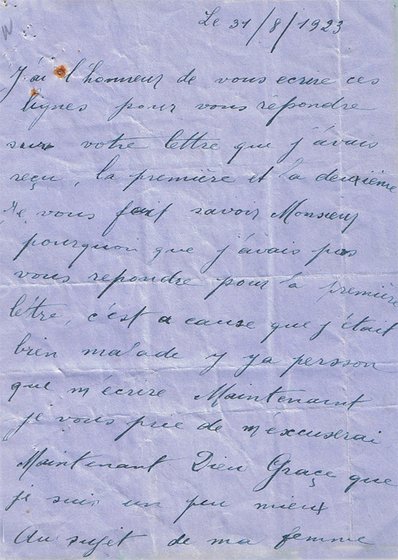 Le 31/8/1923
J'ai l'honneur de vous ecrire ces
lignes pour vous répondre
sur votre lettre que j'avais
reçu, la première et la deuxième
Je vous fait savoir Monsieur
pourquon que j'avais pas
vous repondre pour la première
lêtre, c'est a cause que j'était
bien malade y ya persson
que m'écrire Maintenant
je vous prie de m'excuserai
Maintenant Dieu Graçe que
je suis un peu mieux
Au sujet de ma femme